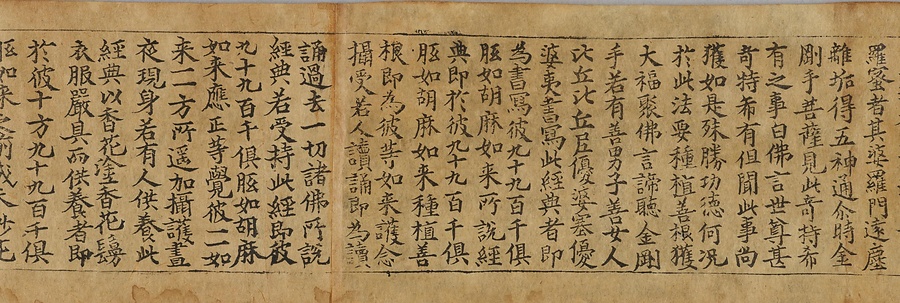 羅蜜者其婆羅門遠塵
離垢得五神通尒時金
剛手菩薩見此奇特希
有之事白佛言世尊甚
奇特希有但聞此事尚
獲如是殊勝功德何況
於此法要種植善根獲
大福聚佛言諦聽金剛
手若有善男子善女人
比丘比丘尼優婆塞優
婆夷書寫此經典者即
為書寫彼九十九百千俱
胝如胡麻如来所說經
典即於彼九十九百千俱
胝如胡麻如来種植善
根即為彼等如来護念
攝受若人讀誦即為讀
誦過去一切諸佛所說
經典若受持此經即彼
九十九百千俱胝如胡麻
如来應正等覺彼一一如
来一一方所遥加攝護晝
夜現身若有人供養此
經典以香花塗香花鬘
衣服嚴具而供養者即
於彼十方九十九百千俱
胝如来之前成天妙花